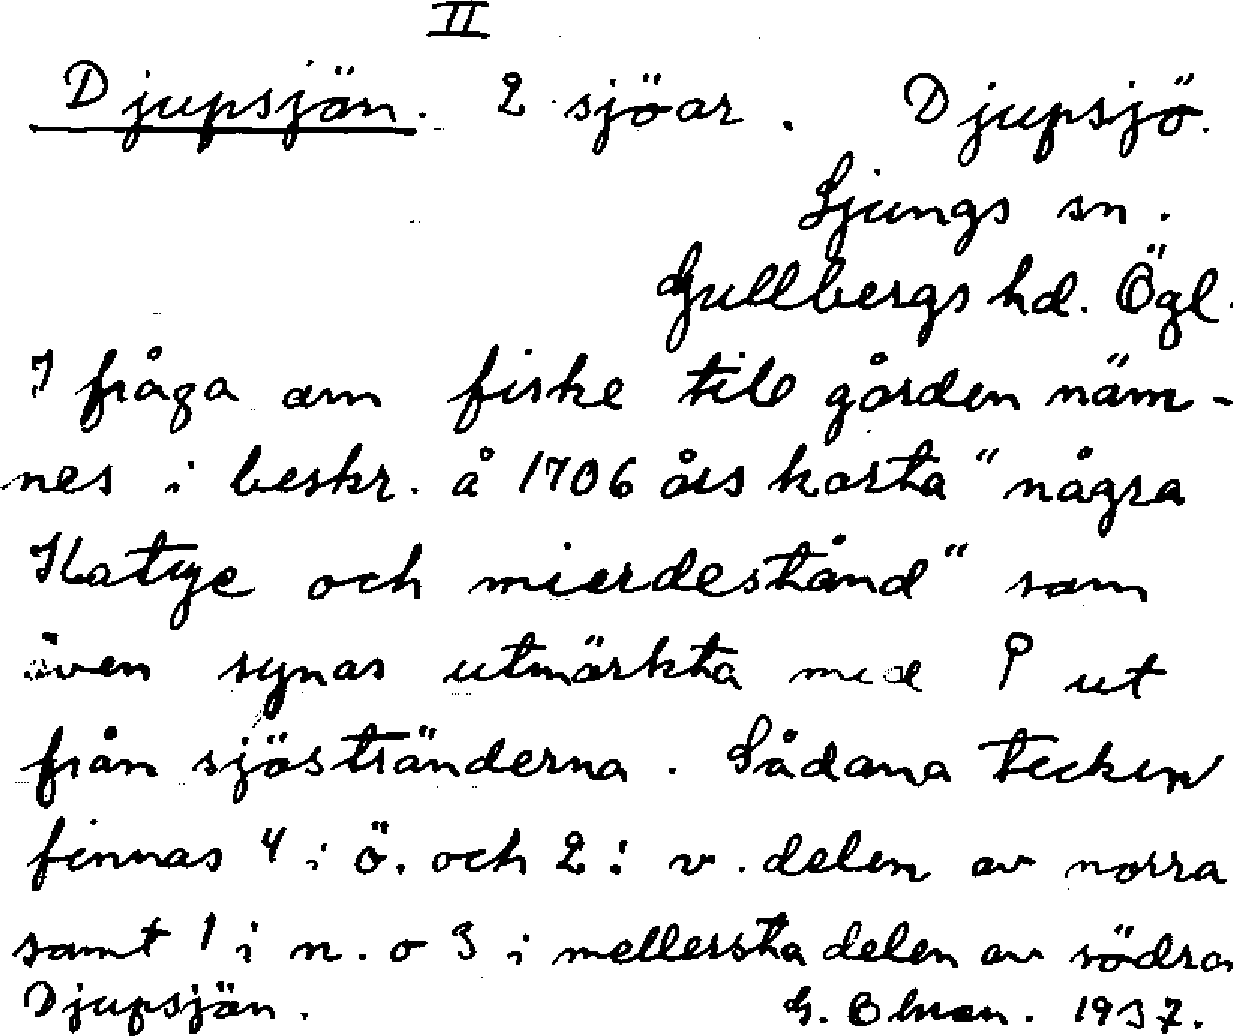 II
Djupsjän. 2 sjöar. Djupsjö.
Ljungs sn.
Gullbergs hd. Ögl.
I fråga om fiske till gården näm-
nes i beskr. å 1706 års karta "några
Katze och mierdestånd" som
även synas utmärkta med ut
från sjöstränderna. Sådana tecken
finnas 4 i ö. och 2 i v. delen av norra
samt 1 i n. o 3 i mellersta delen av södra
Djupsjän. G. 1937.